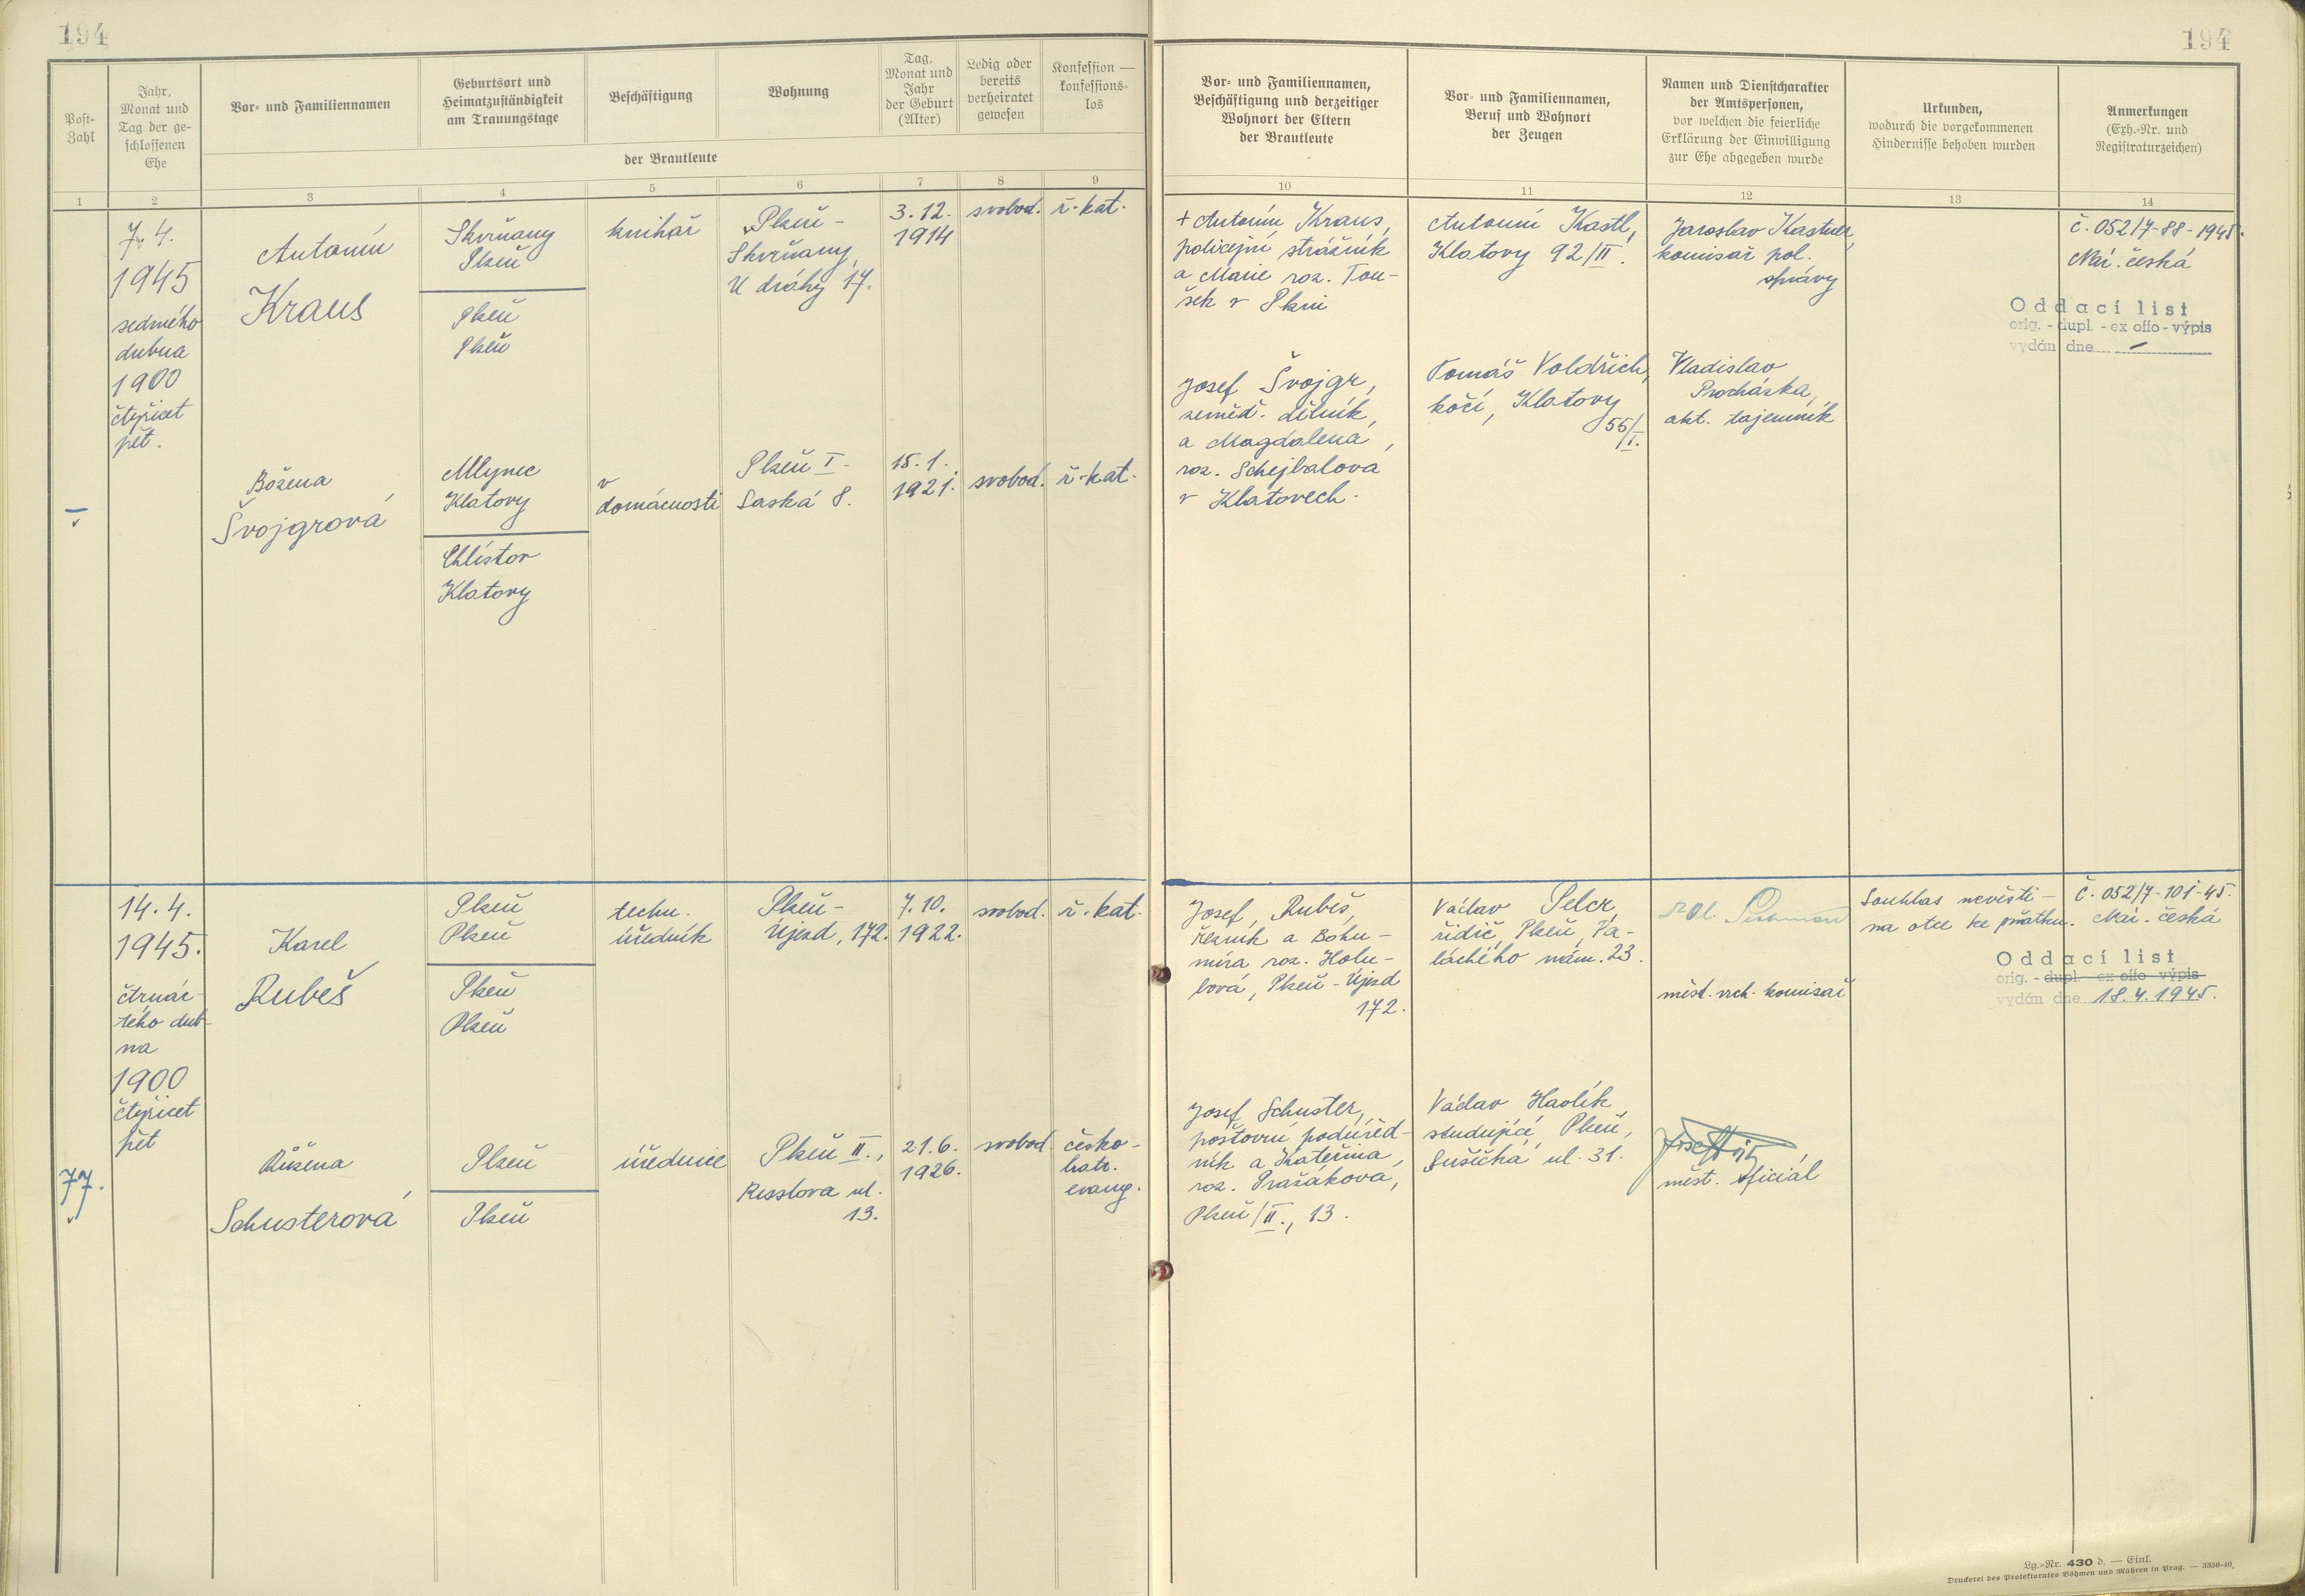 194
194
Post-
Zahl
Jahr,
Monat und
Tag der ge-
schlossenen
Ehe
Vor- und Familiennamen
Geburtsort und
Heimatzuständigkeit
am Trauungstage
Beschäftigung
Wohnung
Tag,
Monat und
Jahr
der Geburt
(Alter)
Ledig oder
bereits
verheiratet
gewesen
Konfession —
konfessions-
los
der Brautleute
Vor- und Familiennamen,
Beschäftigung und derzeitiger
Wohnort der Eltern
der Brautleute
Vor- und Familiennamen,
Beruf und Wohnort
der Zeugen
Namen und Dienstcharakter
der Amtspersonen,
vor welchen die feierliche
Erklärung der Einwilligung
zur Ehe abgegeben wurde
Urkunden,
wodurch die vorgekommenen
Hindernisse behoben wurden
Anmerkungen
(Exh.-Nr. und
Registraturzeichen)
1 2 3 4 5 6 7 8 9 10 11 12 13 14
—
7. 4.
1945
sedmého
dubna
1900
čtyřicet
pět.
Antonín
Kraus
Skvrňany
Plzeň
Plzeň
Plzeň
knihař
Plzeň-
Skvrňany,
U dráhy 17.
3. 12.
1914
svobod.
ř. kat.
Božena
Švojgrová
Mlynec
Klatovy
Chlístov
Klatovy
v
domácnosti
Plzeň I-
Saská 8.
15. 1.
1921.
svobod.
ř. kat.
+ Antonín Kraus,
policejní strážník
a Marie roz. Tou-
šek v Plzni
Josef Švojgr,
zeměd. dělník,
a Magdalena,
roz. Schejbalová
v Klatovech.
Antonín Kastl,
Klatovy 92/II.
Tomáš Voldřich,
kočí, Klatovy
55/I.
Jaroslav Kastner,
komisař pol.
správy
Vladislav
Procházka,
akt. tajemník
č. 052/7-88-1945.
Nár. česká
Oddací list
orig. - dupl. - ex offo - výpis
vydán dne —
77.
14. 4.
1945.
čtrnác-
tého dub-
na
1900
čtyřicet
pět
Karel
Rubeš
Plzeň
Plzeň
Plzeň
Plzeň
techn.
úředník
Plzeň-
Újezd, 172.
7. 10.
1922.
svobod.
ř. kat.
Růžena
Schusterová
Plzeň
Plzeň
úřednice
Plzeň II.,
Resslova ul.
13.
21. 6.
1926.
svobod.
česko-
bratr.
evang.
Josef Rubeš,
řezník a Bohu-
míra roz. Holu-
bová, Plzeň-Újezd
172.
Josef Schuster,
poštovní podúřed-
ník a Kateřina,
roz. Prašáková,
Plzeň/II., 13.
Václav Pelcr,
řidič, Plzeň, Pa-
lackého nám. 23.
Václav Havlík,
studující, Plzeň,
Sušická ul. 31.
měst. vrch. komisař
měst. oficiál
Souhlas nevěsti-
na otce ke sňatku.
Č. 052/7-101-45.
Nár. česká
Oddací list
orig. - dupl. - ex offo - výpis
vydán dne 18. 4. 1945.
Lg.-Nr. 430 d. — Einl.
Druckerei des Protektorates Böhmen und Mähren in Prag. — 3356-40.